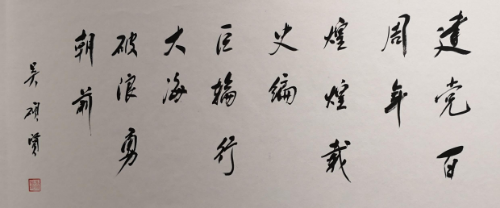 建党百
周年
煌煌载
史编
巨轮行
大海
破浪勇
朝前
吴硕贤